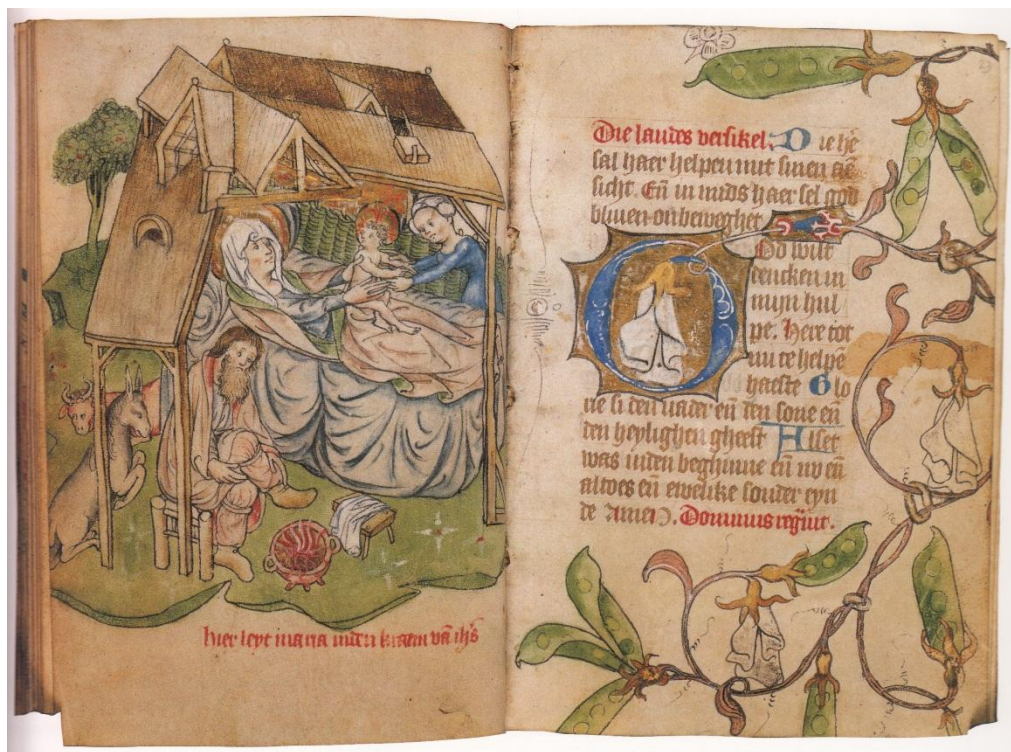 hier leyt maria inden kraem vā ih̄s
Die laudes versikel. Die h̄e
sal haer helpen mit sinen aē
sicht. En̄ in mids haer sel god
bliuen onbeweghet
God wilt
dencken in
mijn hul
pe. Here tot
mi te helpē
haeste Glo
rie si den uader en̄ den sone en̄
den heylighen gheest Alset
was inden beghinne en̄ nv en̄
altoes en̄ ewelike sonder eyn
de Amen. Dominus regīut.